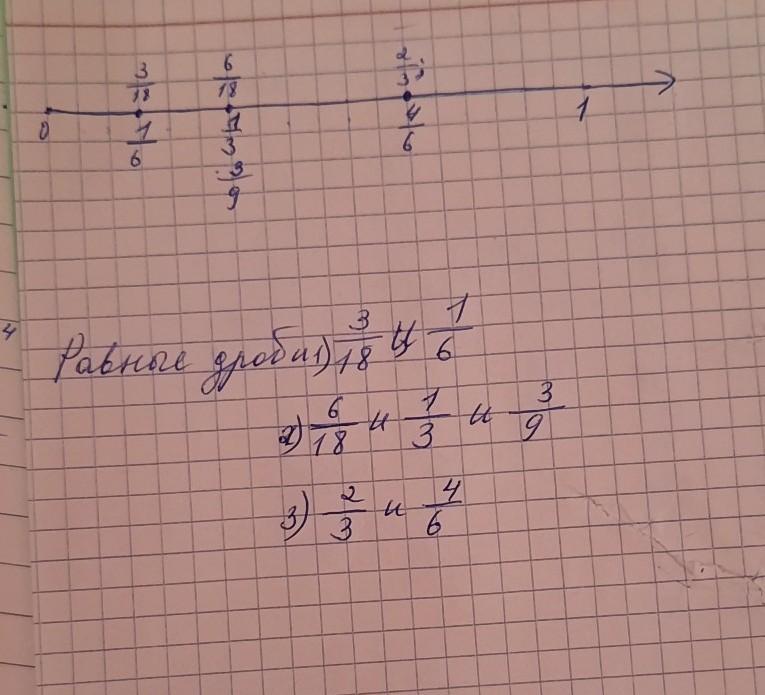 3/18 6/18 2/3;
0 1/6 1/3 4/6 1
3/9
4
Равные дроби 1) 3/18 и 1/6
2) 6/18 и 1/3 и 3/9
3) 2/3 и 4/6